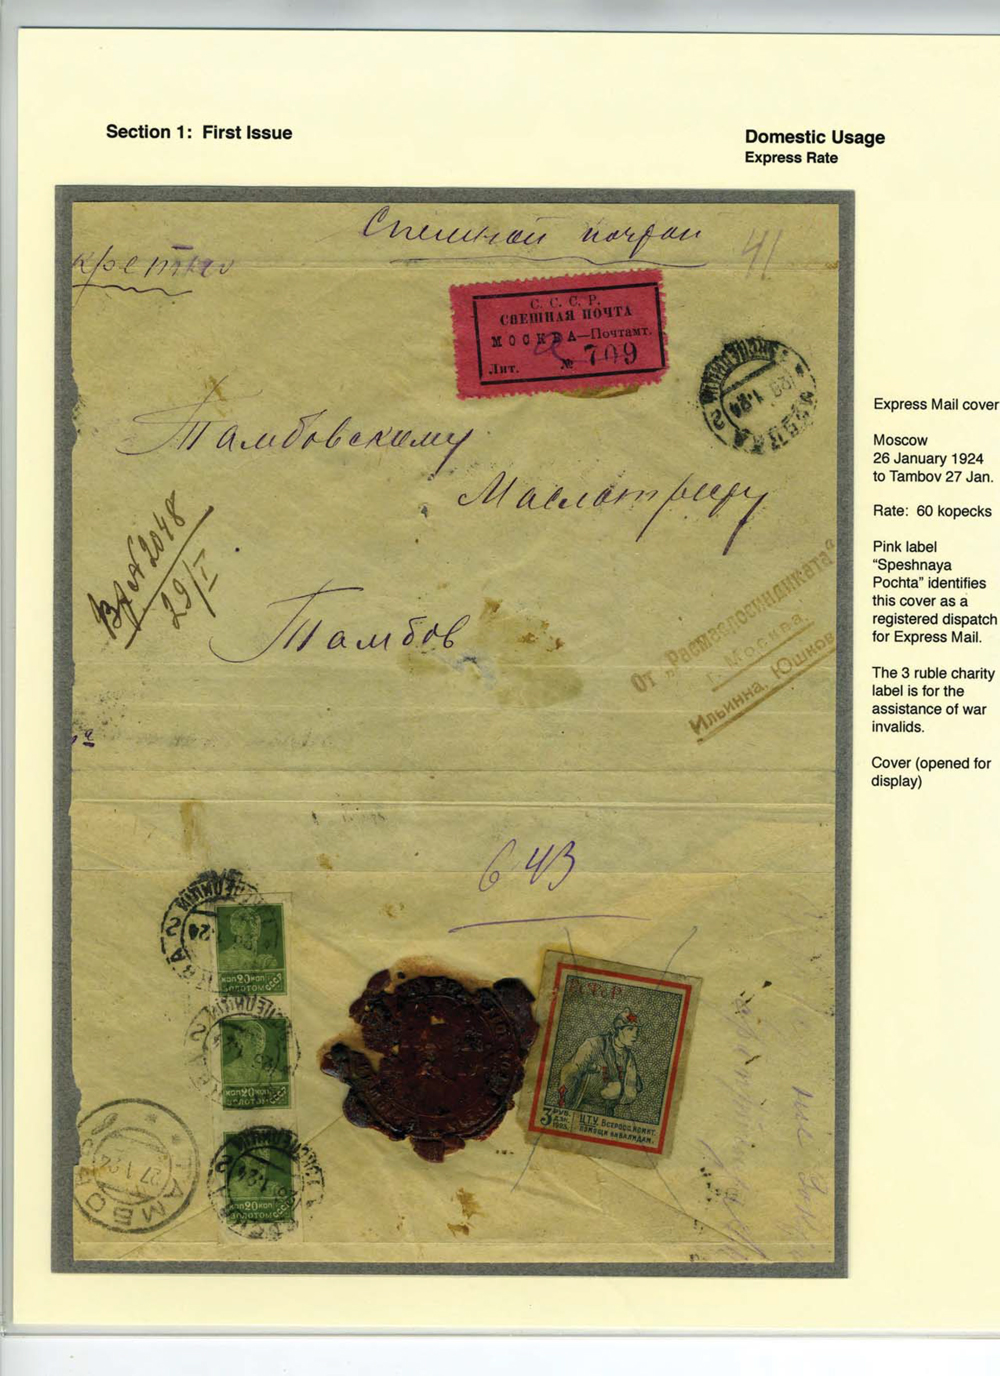 Section 1: First Issue
Domestic Usage
Express Rate
Спешной почтой
41
С. С. С. Р.
СПЕШНАЯ ПОЧТА
МОСКВА—Почтамт.
Лит. № 709
МОСКВА
1.24
Тамбовскому
Маслотресту
Вх № 2048
29/I
Тамбов
От „Расмаслосиндиката“
г. Москва.
Ильинка, Юшков
643
20 КОП
ЗОЛОТОМ
20 КОП
ЗОЛОТОМ
20 КОП
ЗОЛОТОМ
ТАМБОВ
27.1.24
3 РУБ.
ЦТУ. ВСЕРОСС. КОМИТ.
ПОМОЩИ ИНВАЛИДАМ.
Express Mail cover
Moscow
26 January 1924
to Tambov 27 Jan.
Rate: 60 kopecks
Pink label
“Speshnaya
Pochta” identifies
this cover as a
registered dispatch
for Express Mail.
The 3 ruble charity
label is for the
assistance of war
invalids.
Cover (opened for
display)